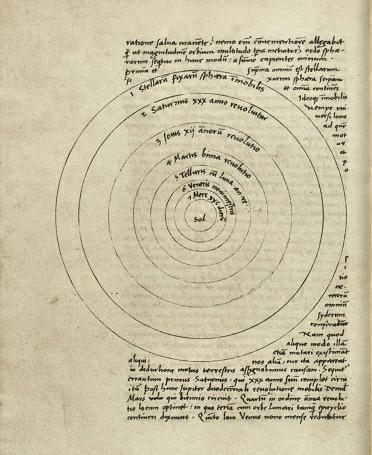 ratione salva manente, nemo em̄ convenientiore allegabit
q̄ ut magnitudinē orbium multitudo tp̄is metiatur, ordo sphæ-
rarum sequitur in hunc modū: a summo capientes initium.
prima et suprema omniū est stellarum
fixarum sphæra seipsam
et omnia continens
Ideoqȝ imobilis
nempe uni
versi locus
ad quē
mot
us et
p o
1 Stellarū fixarū sphæra imobilis
2 Saturnus xxx anno revoluitur
3 Jovis xij annorū revolutio
4 Martis bima revolutio
5 Telluris cū Luna an. re.
6 Veneris nonimestris
7 Merc xxc dierū
Sol
s i
tio
ce-
terorū
omniū
syderum
conferatur
Nam quod
aliquo modo illā
etiā mutari existimāt
aliqui: nos aliā, cur ita appareat
in deductione motus terrestris assignabimus causam. Sequit
errantium primus Saturnus: qui xxx anno suū complet circu
itū post hunc Jupiter duodecennali revolutione mobilis Deinde
Mars qui biennio circuit. Quartū in ordine annua revolu-
tio locum optinet: in quo terrā cum orbe Lunari tanq̄ epicyclio
contineri diximus. Quinto loco Venus nono mense reducitur